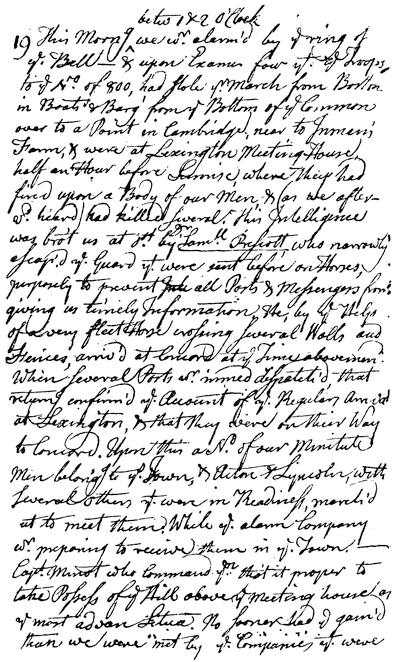 betw 1 & 2 o'Clock
19 This Morng we wr. alarm'd by ye ring of
ye. Bell — & upon Examn found yt. ye Troops,
to ye No. of 800, had stole yr March from Boston
in Boats & Barg' from ye Bottom of ye Common
over to a Point in Cambridge, near to Inman's
Farm, & were at Lexington Meeting-House,
half an Hour before Sunrise, where they had
fired upon a Body of our Men, & (as we after-
wd. heard) had killed several. This Intelligence
was bro't us at 1st. by Samll. Prescott, who narrowly
escap'd ye Guard yt. were sent before on Horses,
purposely to prevent all Posts & Messengers from
giving us timely Information. He, by ye Help
of a very fleet Horse crossing several Walls and
Fences, arriv'd at Concord at ye Time abovemen:
When several Posts wr. immed: dispatch'd that
return' confirm'd ye Account of ye Regulars Arriv'
at Lexington, & that they were on their Way
to Concord. Upon this a No. of our Minute
Men belong' to ye Town, & Acton & Lyncoln, with
Several others yt. were in Readiness, march'd
out to meet them. While ye. alarm Company
wr. preparing to receive them in ye Town. —
Capt. Minot who command ym. tho't it proper to
take Possess of ye Hill above ye meeting house as
ye most advan Situa. No sooner had it gain'd
than we were met by ye Companies yt. were